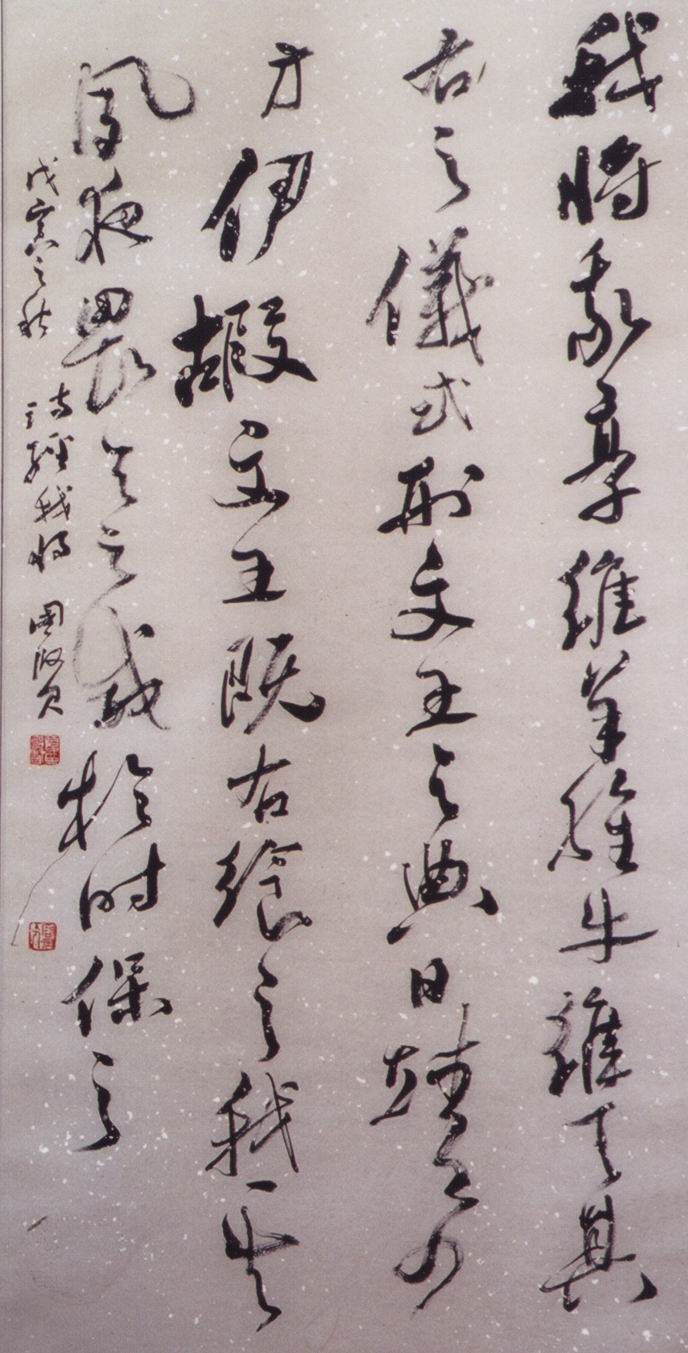 我将我享維羊維牛維天其
右之儀式刑文王之典日靖四
方伊嘏文王既右飨之我其
夙夜畏天之威於时保之
戊寅之秋 诗經我将